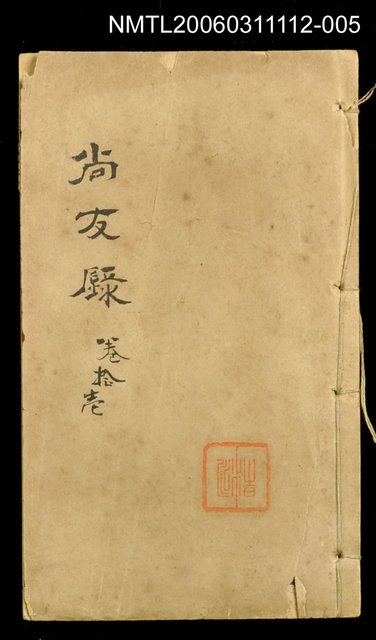 NMTL20060311112-005
尚友錄
卷拾壱